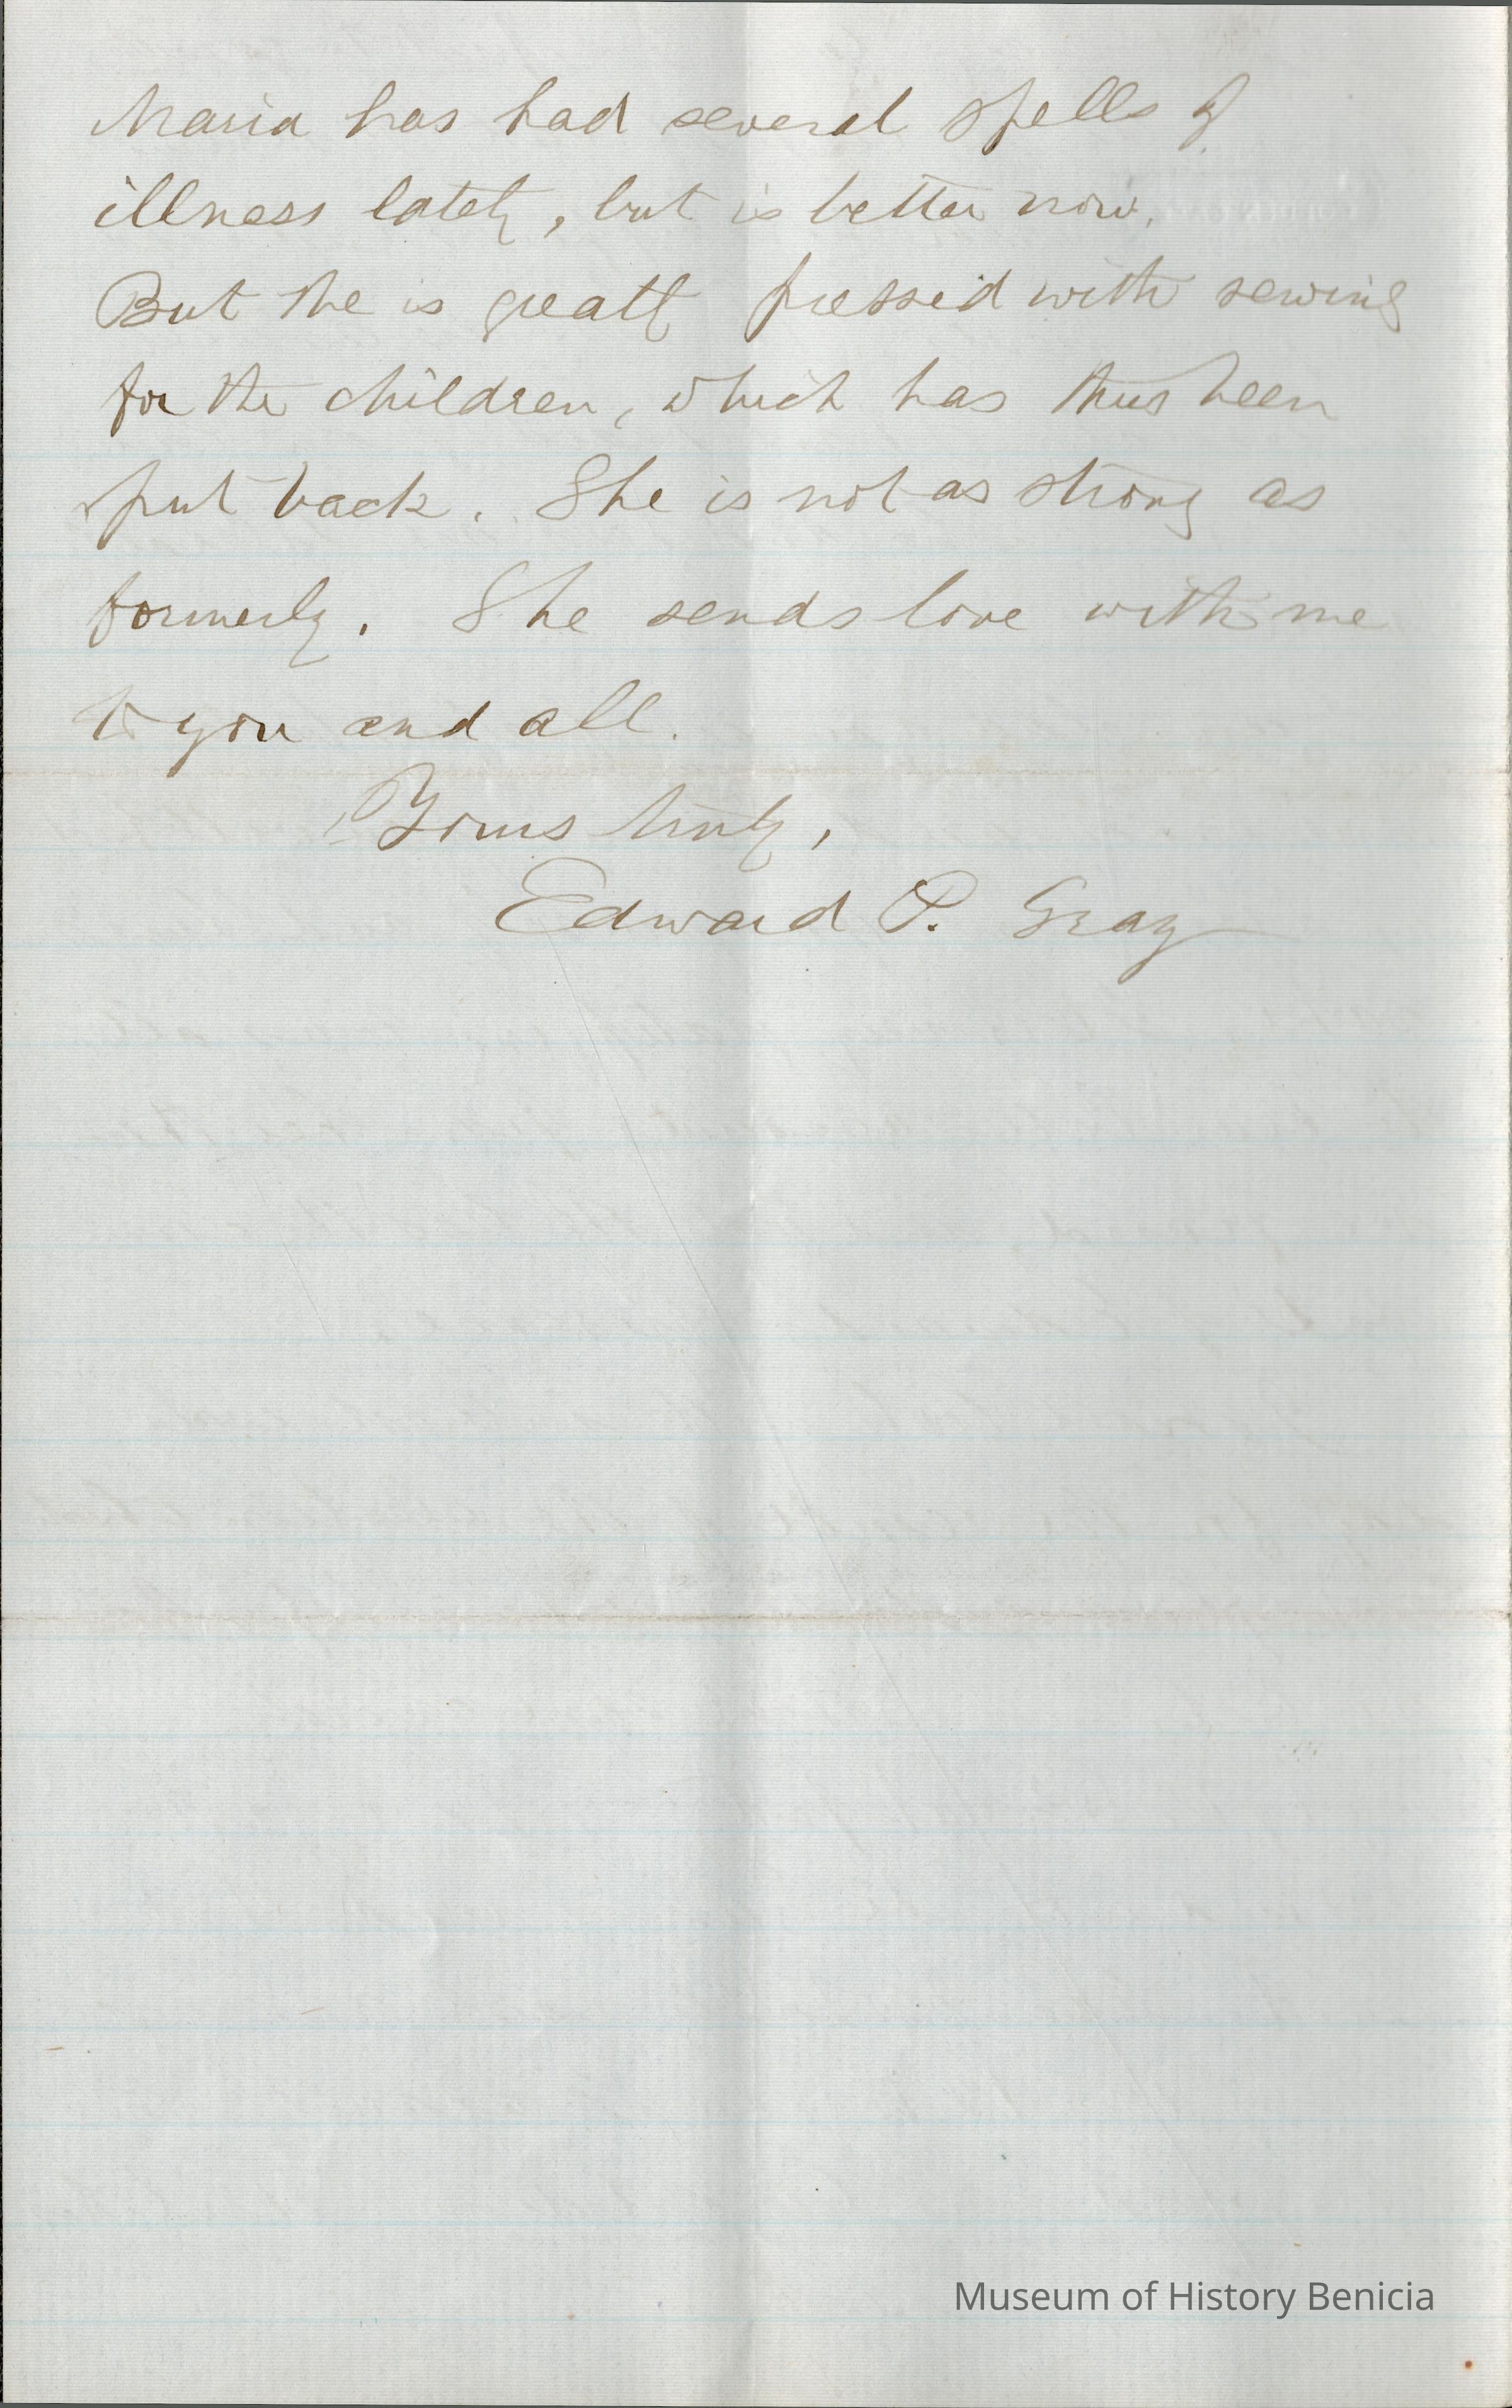 Maria has had several spells of
illness lately, but is better now.
But she is greatly pressed with sewing
for the children, which has thus been
put back. She is not as strong as
formerly. She sends love with me
to you and all.
Yours truly,
Edward P. Gray
Museum of History Benicia